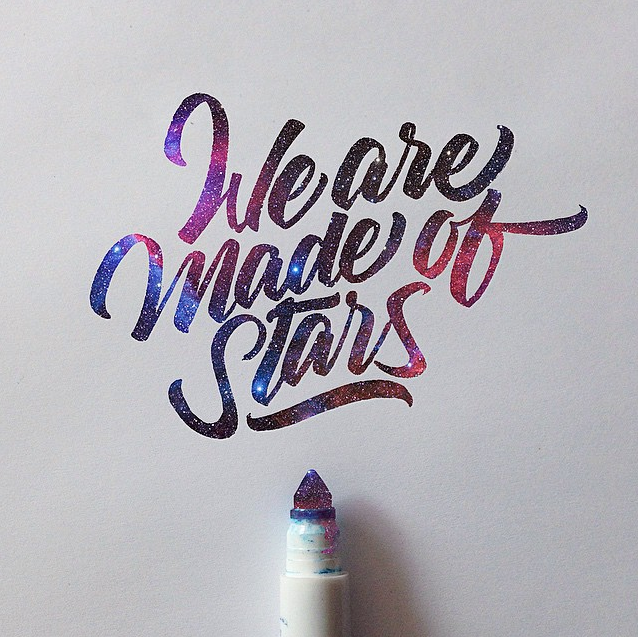 We are
Made of
Stars